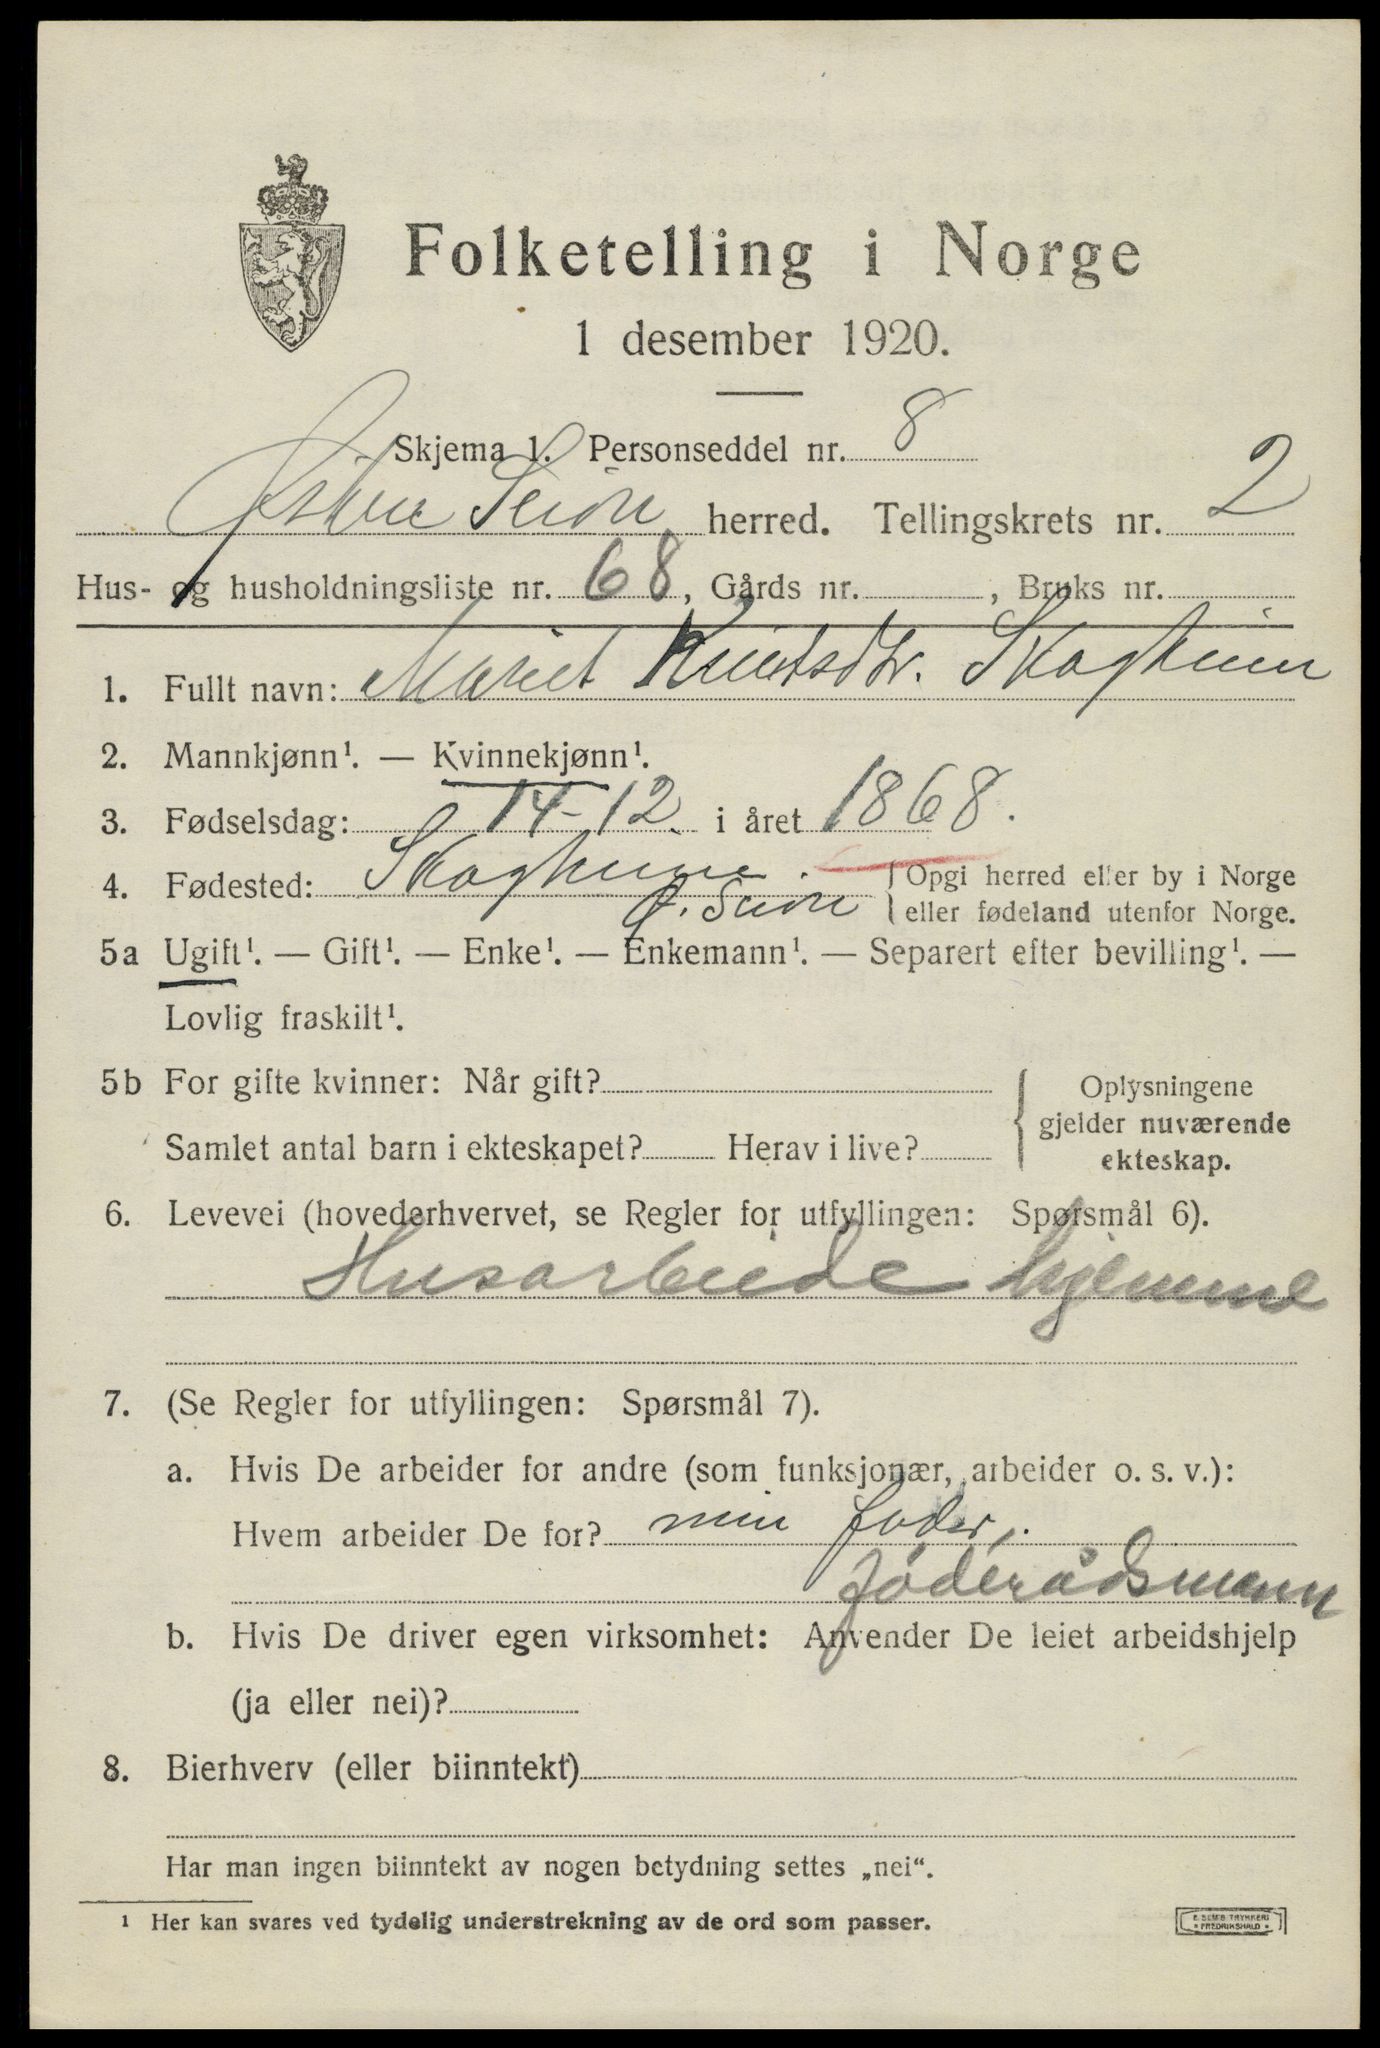 Folketelling i Norge
1 desember 1920.
Skjema 1. Personseddel nr. 8
Østre Slidre herred. Tellingskrets nr. 2
Hus- og husholdningsliste nr. 68, Gårds nr. , Bruks nr.
1. Fullt navn: Marit Knutsdtr.
2. Mannkjønn¹. — Kvinnekjønn¹.
3. Fødselsdag: 14-12. i året 1868.
4. Fødested: Opgi herred eller by i Norge
eller fødeland utenfor Norge.
5a Ugift¹. — Gift¹. — Enke¹. — Enkemann¹. — Separert efter bevilling¹. —
Lovlig fraskilt¹.
5b For gifte kvinner: Når gift? Oplysningene
gjelder nuværende
Samlet antal barn i ekteskapet? Herav i live?
ekteskap.
6. Levevei (hovederhvervet, se Regler for utfyllingen: Spørsmål 6).
Husarbeide hjemme
7. (Se Regler for utfyllingen: Spørsmål 7).
a. Hvis De arbeider for andre (som funksjonær, arbeider o. s. v.):
Hvem arbeider De for? min fader,
føderådsmann
b. Hvis De driver egen virksomhet: Anvender De leiet arbeidshjelp
(ja eller nei)?
8. Bierhverv (eller biinntekt)
Har man ingen biinntekt av nogen betydning settes „nei“.
¹ Her kan svares ved tydelig understrekning av de ord som passer.
E. SEMS TRYKKERI
* FREDRIKSHALD *